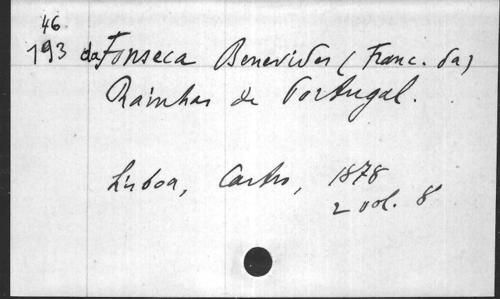 46.
193 da Fonseca Benevides (Franc. da)
Rainhas de Portugal.
Lisboa, Castro, 1878
2 vol. 8°